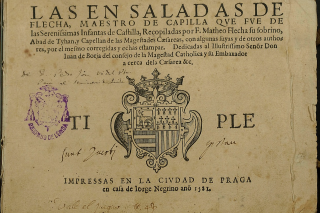 LAS EN SALADAS DE
FLECHA, MAESTRO DE CAPILLA QVE FVE DE
las Serenissimas Infantas de Castilla, Recopiladas por F. Matheo Flecha su sobrino,
Abad de Tyhan, y Capellan de las Magestades Cesareas, con algunas suyas y de otros autho
res, por el mesmo corregidas y echas estampar. Dedicadas al Illustrissimo Señor Don
Iuan de Borja del consejo de la Magestad Catholica y su Embaxador
a cerca dela Cesarea &c,
TI PLE
IMPRESSAS EN LA CIVDAD DE PRAGA
en casa de Iorge Negrino año 1581.